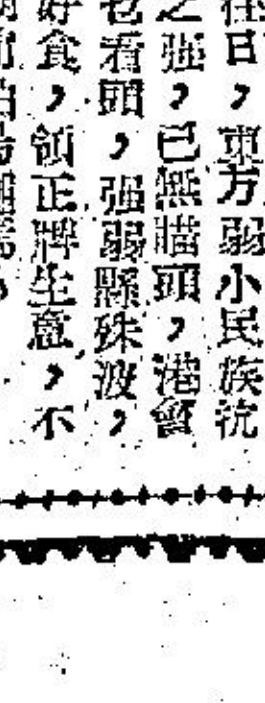 日，東方弱小民族抗
之强，已無瞄頭，港會
看頭，强弱縣殊波，
好食，領正牌生意，不